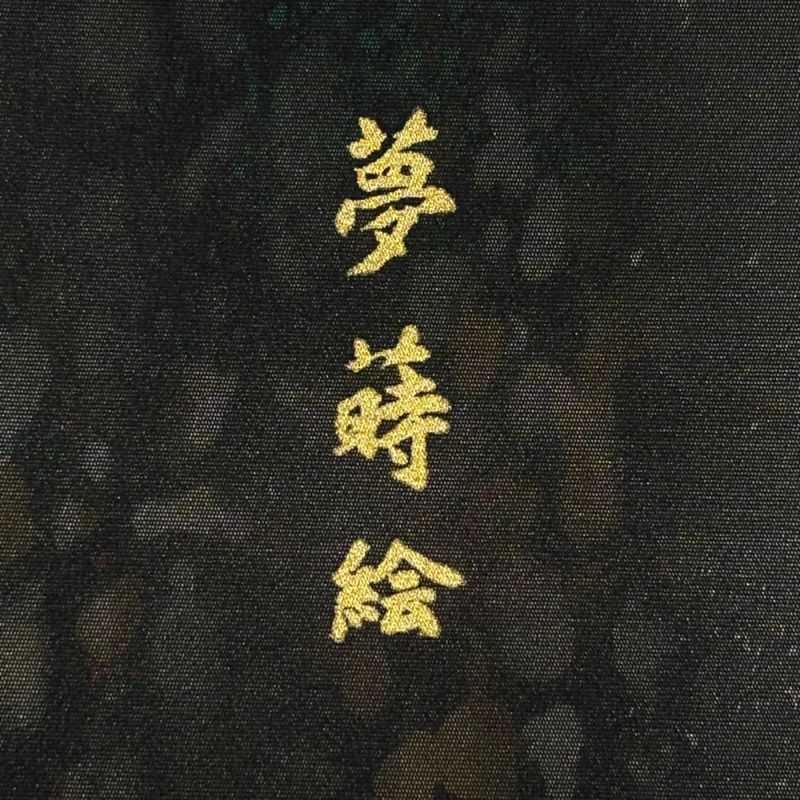 夢蒔絵